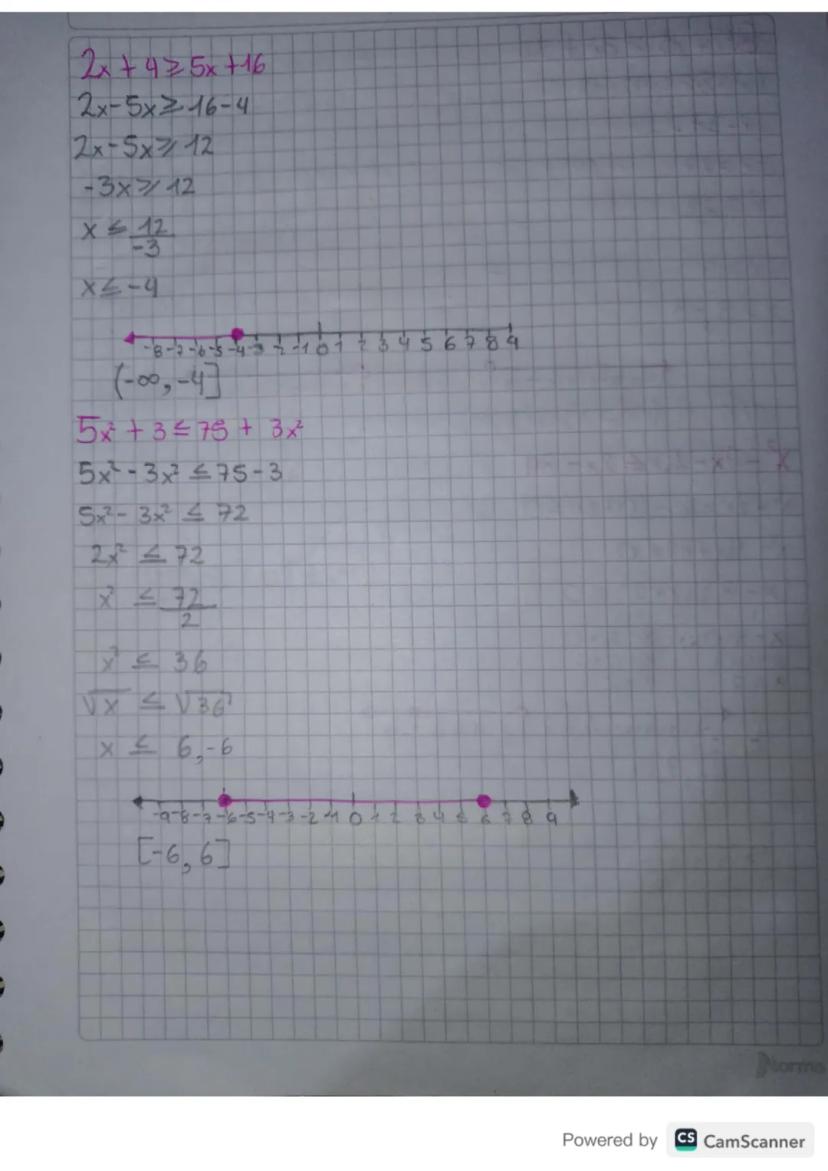 2x + 4 ≥ 5x + 16
2x - 5x ≥ 16 - 4
2x - 5x ≥ 12
-3x ≥ 12
x ≤ 12/-3
x ≤ -4
-8 -7 -6 -5 -4 -3 -2 -1 0 1 2 3 4 5 6 7 8 9
(-∞, -4]
5x² + 3 ≤ 75 + 3x²
5x² - 3x² ≤ 75 - 3
5x² - 3x² ≤ 72
2x² ≤ 72
x² ≤ 72/2
x² ≤ 36
√x ≤ √36
x ≤ 6, -6
-9 -8 -7 -6 -5 -4 -3 -2 -1 0 1 2 3 4 5 6 7 8 9
[-6, 6]
Norma
Powered by CS CamScanner